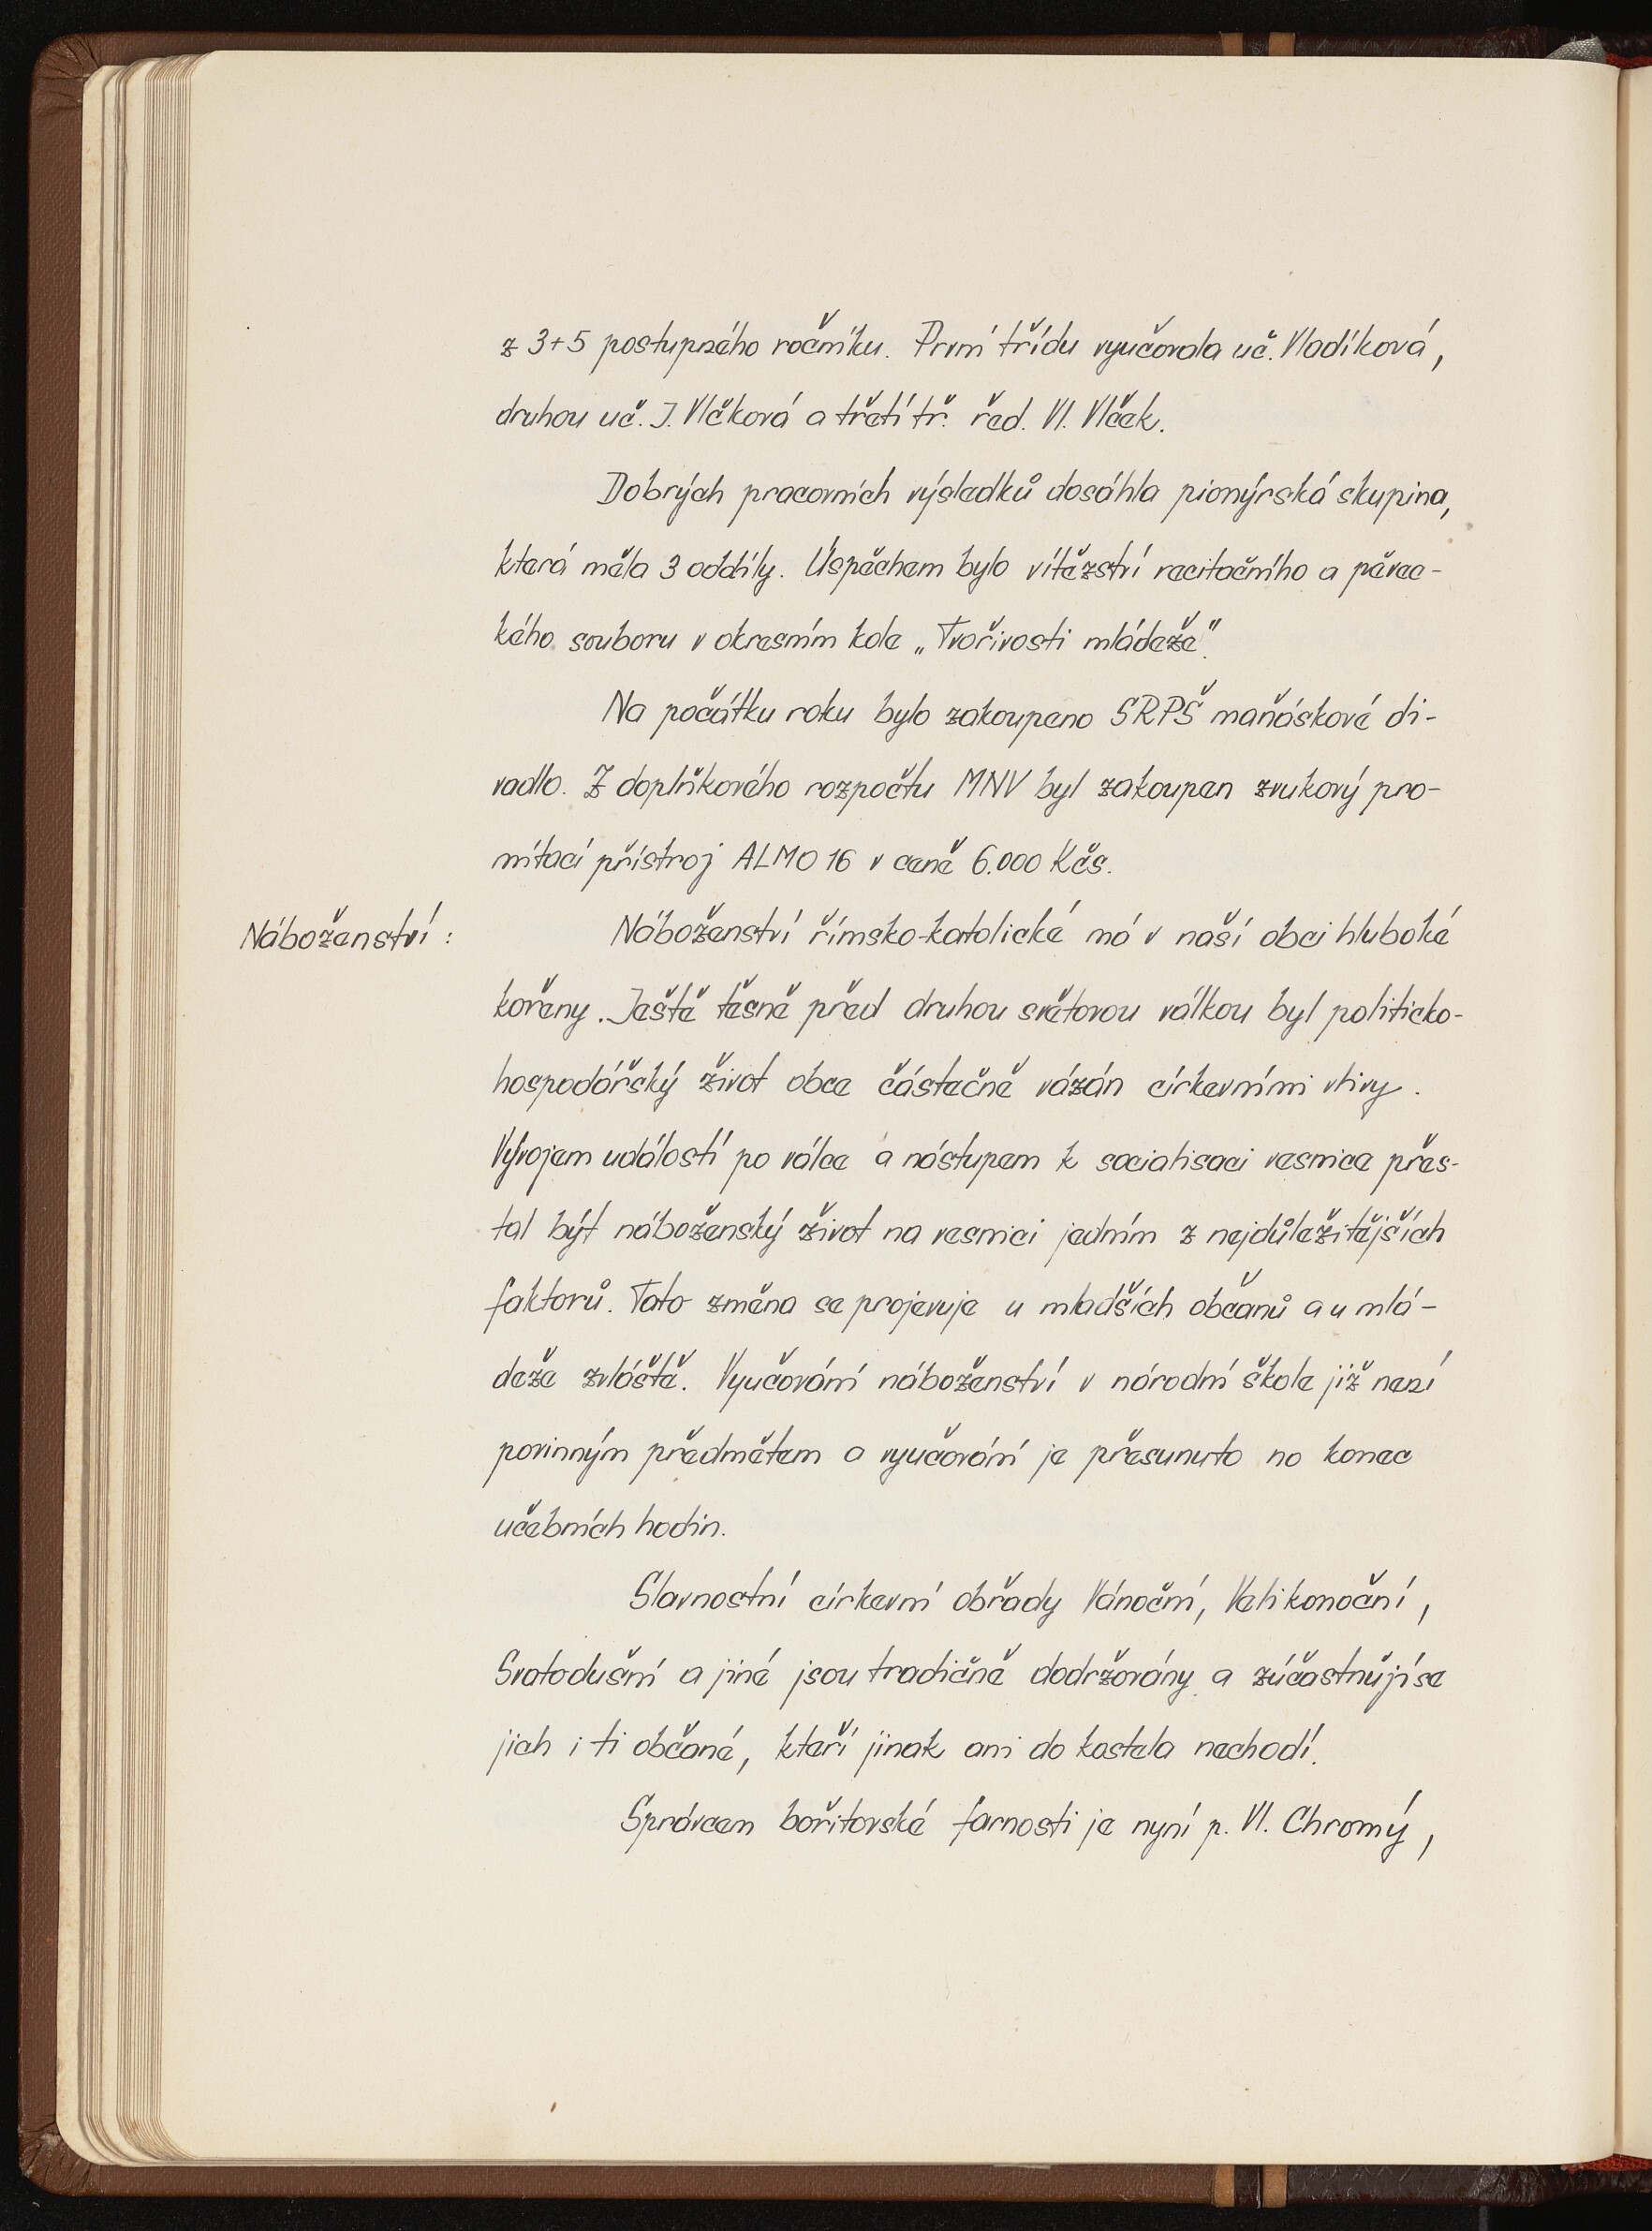 z 3+5 postupného ročníku. První třídu vyučovala uč. Vladíková,
druhou uč. J. Vlčková a třetí tř. řed. Vl. Vlček.
Dobrých pracovních výsledků dosáhla pionýrská skupina,
která měla 3 oddíly. Úspěchem bylo vítězství recitačního a pěvec-
kého souboru v okresním kole „Tvořivosti mládeže".
Na počátku roku bylo zakoupeno SRPŠ maňáskové di-
vadlo. Z doplňkového rozpočtu MNV byl zakoupen zvukový pro-
mítací přístroj ALMO 16 v ceně 6.000 Kčs.
Náboženství :
Náboženství římsko-katolické má v naší obci hluboké
kořeny. Ještě těsně před druhou světovou válkou byl politicko-
hospodářský život obce částečně vázán církevními vlivy.
Vývojem událostí po válce a nástupem k socialisaci vesnice přes-
tal být náboženský život na vesnici jedním z nejdůležitějších
faktorů. Tato změna se projevuje u mladších občanů a u mlá-
deže zvláště. Vyučování náboženství v národní škole již není
povinným předmětem a vyučování je přesunuto na konec
učebních hodin.
Slavnostní církevní obřady Vánoční, Velikonoční,
Svatodušní a jiné jsou tradičně dodržovány a zúčastnůjí se
jich i ti občané, kteří jinak ani do kostela nechodí.
Správcem bořitovské farnosti je nyní p. Vl. Chromý,